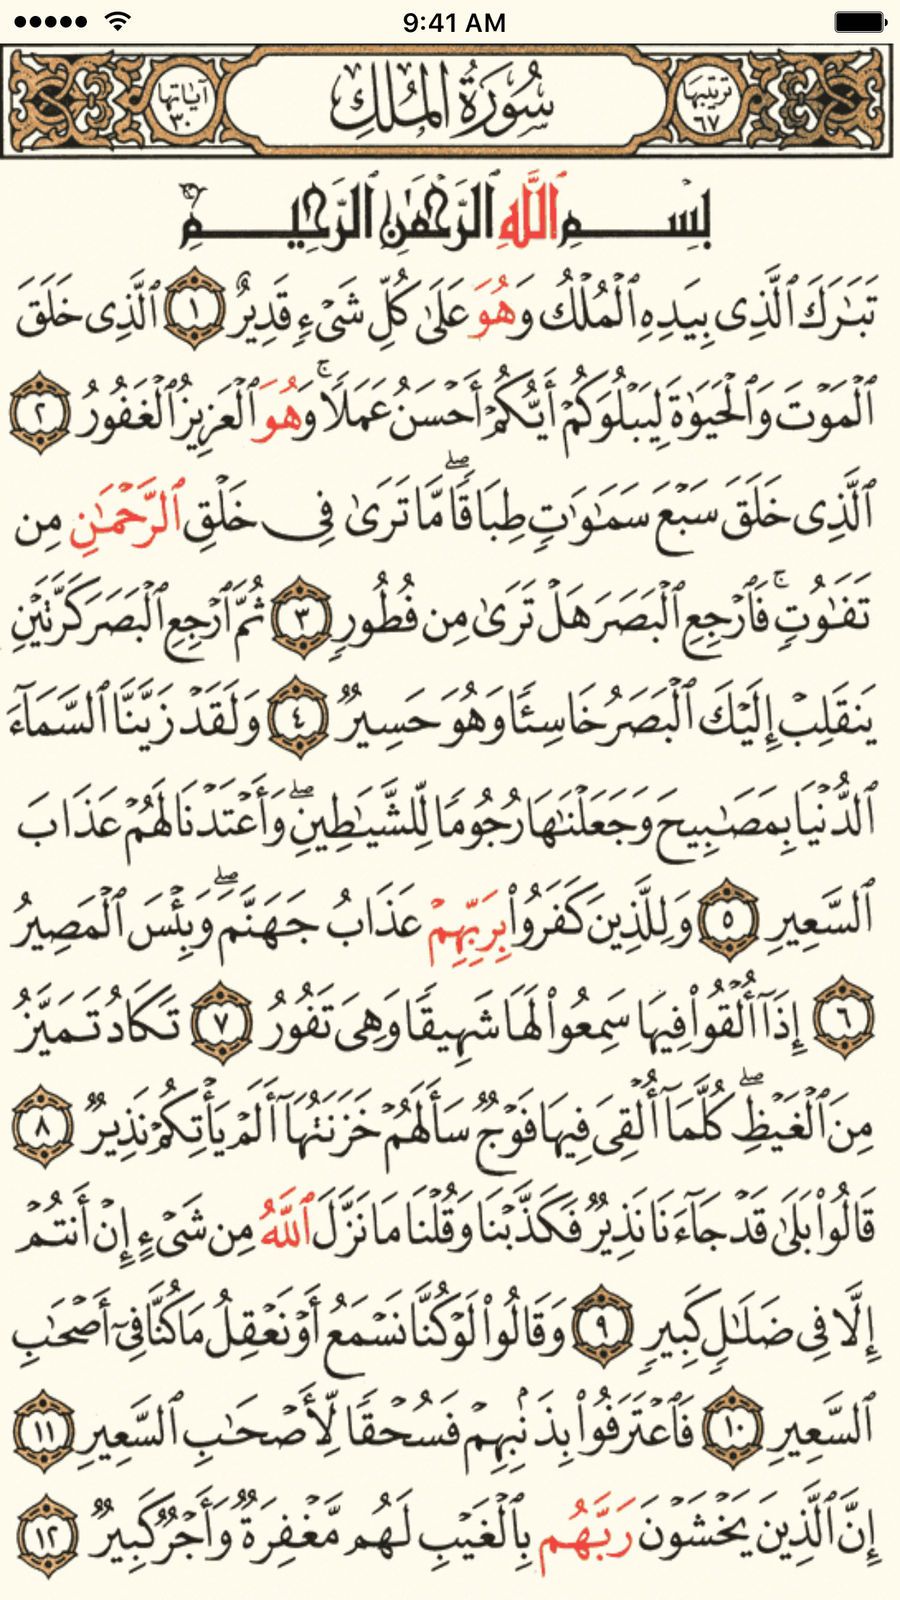 9:41 AM
ترتيبها ٦٧ سُورَةُ المُلكِ آيَاتها ٣٠
بِسْمِ ٱللَّهِ ٱلرَّحْمَٰنِ ٱلرَّحِيمِ
تَبَٰرَكَ ٱلَّذِى بِيَدِهِ ٱلْمُلْكُ وَهُوَ عَلَىٰ كُلِّ شَىْءٍ قَدِيرٌ ١ ٱلَّذِى خَلَقَ
ٱلْمَوْتَ وَٱلْحَيَوٰةَ لِيَبْلُوَكُمْ أَيُّكُمْ أَحْسَنُ عَمَلًا ۚ وَهُوَ ٱلْعَزِيزُ ٱلْغَفُورُ ٢
ٱلَّذِى خَلَقَ سَبْعَ سَمَٰوَٰتٍ طِبَاقًا ۖ مَّا تَرَىٰ فِى خَلْقِ ٱلرَّحْمَٰنِ مِن
تَفَٰوُتٍ ۖ فَٱرْجِعِ ٱلْبَصَرَ هَلْ تَرَىٰ مِن فُطُورٍ ٣ ثُمَّ ٱرْجِعِ ٱلْبَصَرَ كَرَّتَيْنِ
يَنقَلِبْ إِلَيْكَ ٱلْبَصَرُ خَاسِئًا وَهُوَ حَسِيرٌ ٤ وَلَقَدْ زَيَّنَّا ٱلسَّمَآءَ
ٱلدُّنْيَا بِمَصَٰبِيحَ وَجَعَلْنَٰهَا رُجُومًا لِّلشَّيَٰطِينِ ۖ وَأَعْتَدْنَا لَهُمْ عَذَابَ
ٱلسَّعِيرِ ٥ وَلِلَّذِينَ كَفَرُوا۟ بِرَبِّهِمْ عَذَابُ جَهَنَّمَ ۖ وَبِئْسَ ٱلْمَصِيرُ
٦ إِذَآ أُلْقُوا۟ فِيهَا سَمِعُوا۟ لَهَا شَهِيقًا وَهِىَ تَفُورُ ٧ تَكَادُ تَمَيَّزُ
مِنَ ٱلْغَيْظِ ۖ كُلَّمَآ أُلْقِىَ فِيهَا فَوْجٌ سَأَلَهُمْ خَزَنَتُهَآ أَلَمْ يَأْتِكُمْ نَذِيرٌ ٨
قَالُوا۟ بَلَىٰ قَدْ جَآءَنَا نَذِيرٌ فَكَذَّبْنَا وَقُلْنَا مَا نَزَّلَ ٱللَّهُ مِن شَىْءٍ إِنْ أَنتُمْ
إِلَّا فِى ضَلَٰلٍ كَبِيرٍ ٩ وَقَالُوا۟ لَوْ كُنَّا نَسْمَعُ أَوْ نَعْقِلُ مَا كُنَّا فِىٓ أَصْحَٰبِ
ٱلسَّعِيرِ ١٠ فَٱعْتَرَفُوا۟ بِذَنۢبِهِمْ فَسُحْقًا لِّأَصْحَٰبِ ٱلسَّعِيرِ ١١
إِنَّ ٱلَّذِينَ يَخْشَوْنَ رَبَّهُم بِٱلْغَيْبِ لَهُم مَّغْفِرَةٌ وَأَجْرٌ كَبِيرٌ ١٢